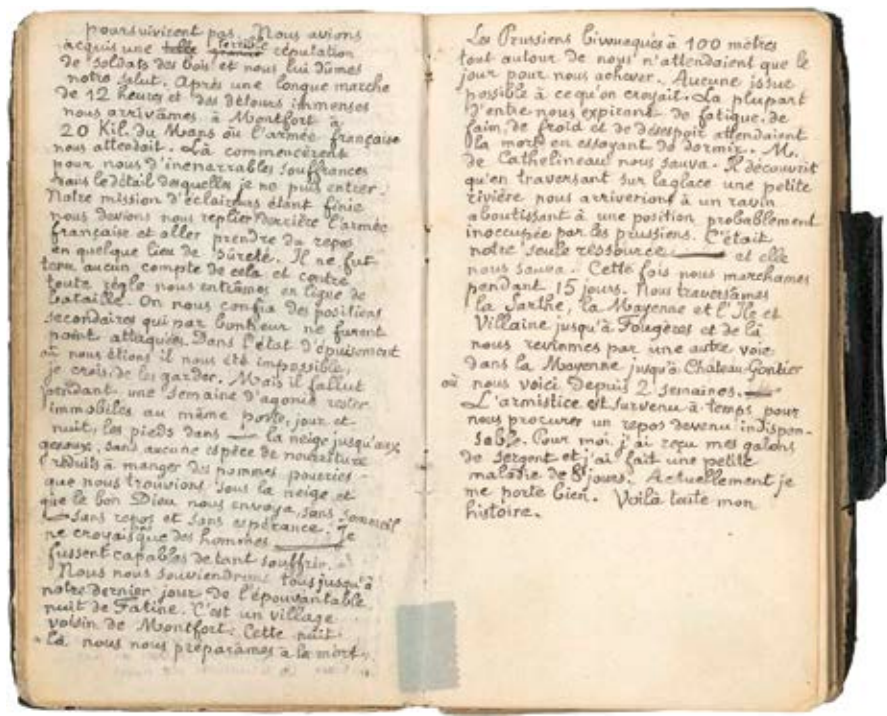 poursuivirent pas. Nous avions
acquis une telle terrible réputation
de soldats des bois et nous lui dûmes
notre salut. Après une longue marche
de 12 heures et des détours immenses
nous arrivâmes à Montfort à
20 Kil. du Mans où l'armée française
nous attendait. Là commencèrent
pour nous d'inenarrables souffrances
dans le détail desquelles je ne puis entrer.
Notre mission d'éclaireurs étant finie
nous devions nous replier derrière l'armée
française et aller prendre du repos
en quelque lieu de sûreté. Il ne fut
tenu aucun compte de cela et contre
toute règle nous entrâmes en ligne de
bataille. On nous confia des positions
secondaires qui par bonheur ne furent
point attaquées. Dans l'état d'épuisement
où nous étions il nous eté impossible,
je crois, de les garder. Mais il fallut
pendant une semaine d'agonie rester
immobiles au même poste, jour et
nuit, les pieds dans la neige jusqu'aux
genoux, sans aucune espèce de nourriture
réduits à manger des pommes pourries
que nous trouvions sous la neige et
que le bon Dieu nous envoya, sans sommeil
sans repos et sans espérance. Je
ne croyais que des hommes
fussent capables de tant souffrir.
Nous nous souviendrons tous jusqu'à
notre dernier jour de l'épouvantable
nuit de Fatine. C'est un village
voisin de Montfort. Cette nuit
là nous nous préparâmes à la mort.
Les Prussiens bivouaqués à 100 mètres
tout autour de nous n'attendaient que le
jour pour nous achever. Aucune issue
possible à ce qu'on croyait. La plupart
d'entre nous expirant de fatigue, de
faim, de froid et de désespoir attendaient
la mort en essayant de dormir. M.
de Cathelineau nous sauva. Il découvrit
qu'en traversant sur la glace une petite
rivière nous arriverions à un ravin
aboutissant à une position probablement
inoccupée par les prussiens. C'était
notre seule ressource et elle
nous sauva. Cette fois nous marchames
pendant 15 jours. Nous traversâmes
la Sarthe, la Mayenne et l'Ile et
Villaine jusqu'à Fougères et de là
nous revinmes par une autre voie
dans la Mayenne jusqu'à Château-Gontier
où nous voici depuis 2 semaines.
L'armistice est survenu à temps pour
nous procurer un repos devenu indispen-
sable. Pour moi, j'ai reçu mes galons
de sergent et j'ai fait une petite
maladie de 8 jours. Actuellement je
me porte bien. Voilà toute mon
histoire.